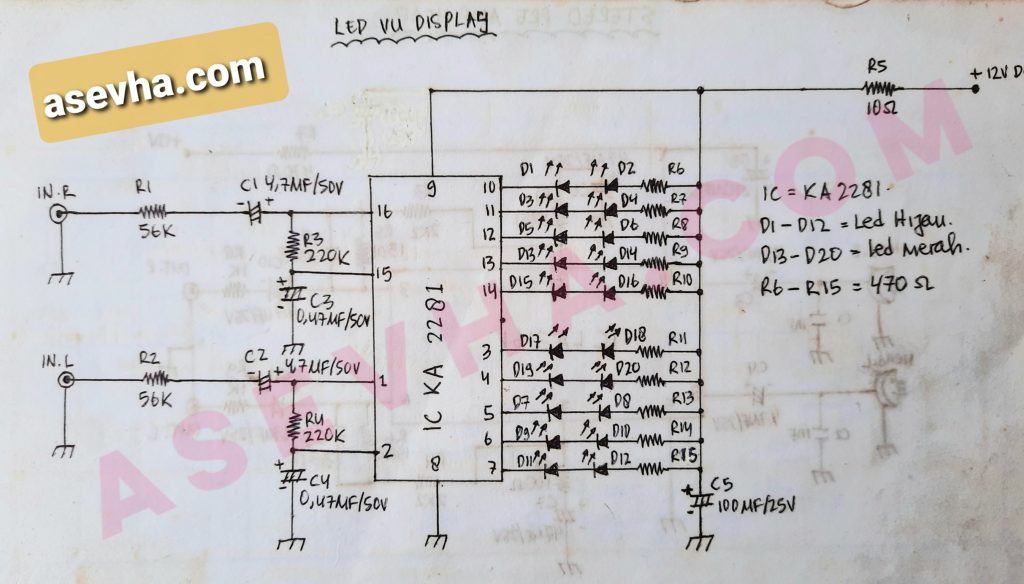 LED VU DISPLAY
asevha.com
ASEVHA.COM
R5
+ 12V D
10Ω
D1 D2 R6
9 10
IN.R R1 C1 4,7MF/50V
- +
16
56K
D3 D4 R7
11
D5 D6 R8
12
R3
220K
15
D13 D14 R9
13
D15 D16 R10
14
+
-
C3
0,47MF/50V
IC KA 2281
IC = KA 2281.
D1-D12 = Led Hijau.
D13-D20 = led merah.
R6-R15 = 470 Ω
IN.L R2 C2 4,7MF/50V
- +
1
56K
D17 D18 R11
3
D19 D20 R12
4
R4
220K
2
D7 D8 R13
5
D9 D10 R14
6
D11 D12 R15
7
+
-
C4
0,47MF/50V
8
+
-
C5
100MF/25V